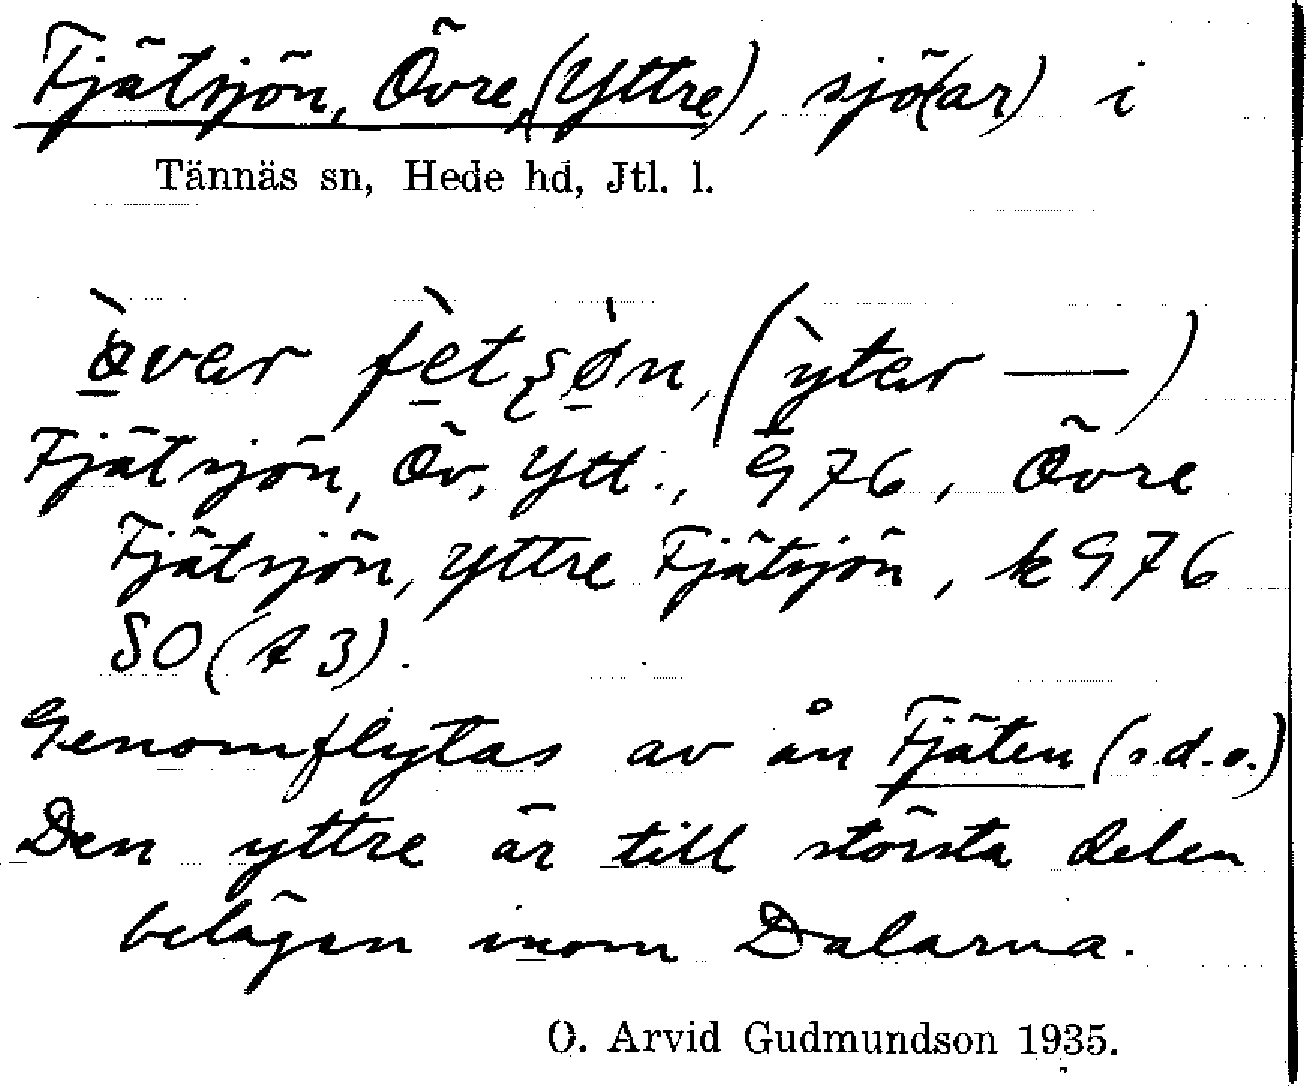 Fjätsjön, Övre, (Yttre), sjö(ar) i
Tännäs sn, Hede hd, Jtl. l.
(yter —)
Fjätsjön, Öv., Ytt., G 76, Övre
Fjätsjön, Yttre Fjätsjön, k G 76
SO (A 3).
Genomflytas av ån Fjäten (s.d.o.)
Den yttre är till största delen
belägen inom Dalarna.
O. Arvid Gudmundson 1935.